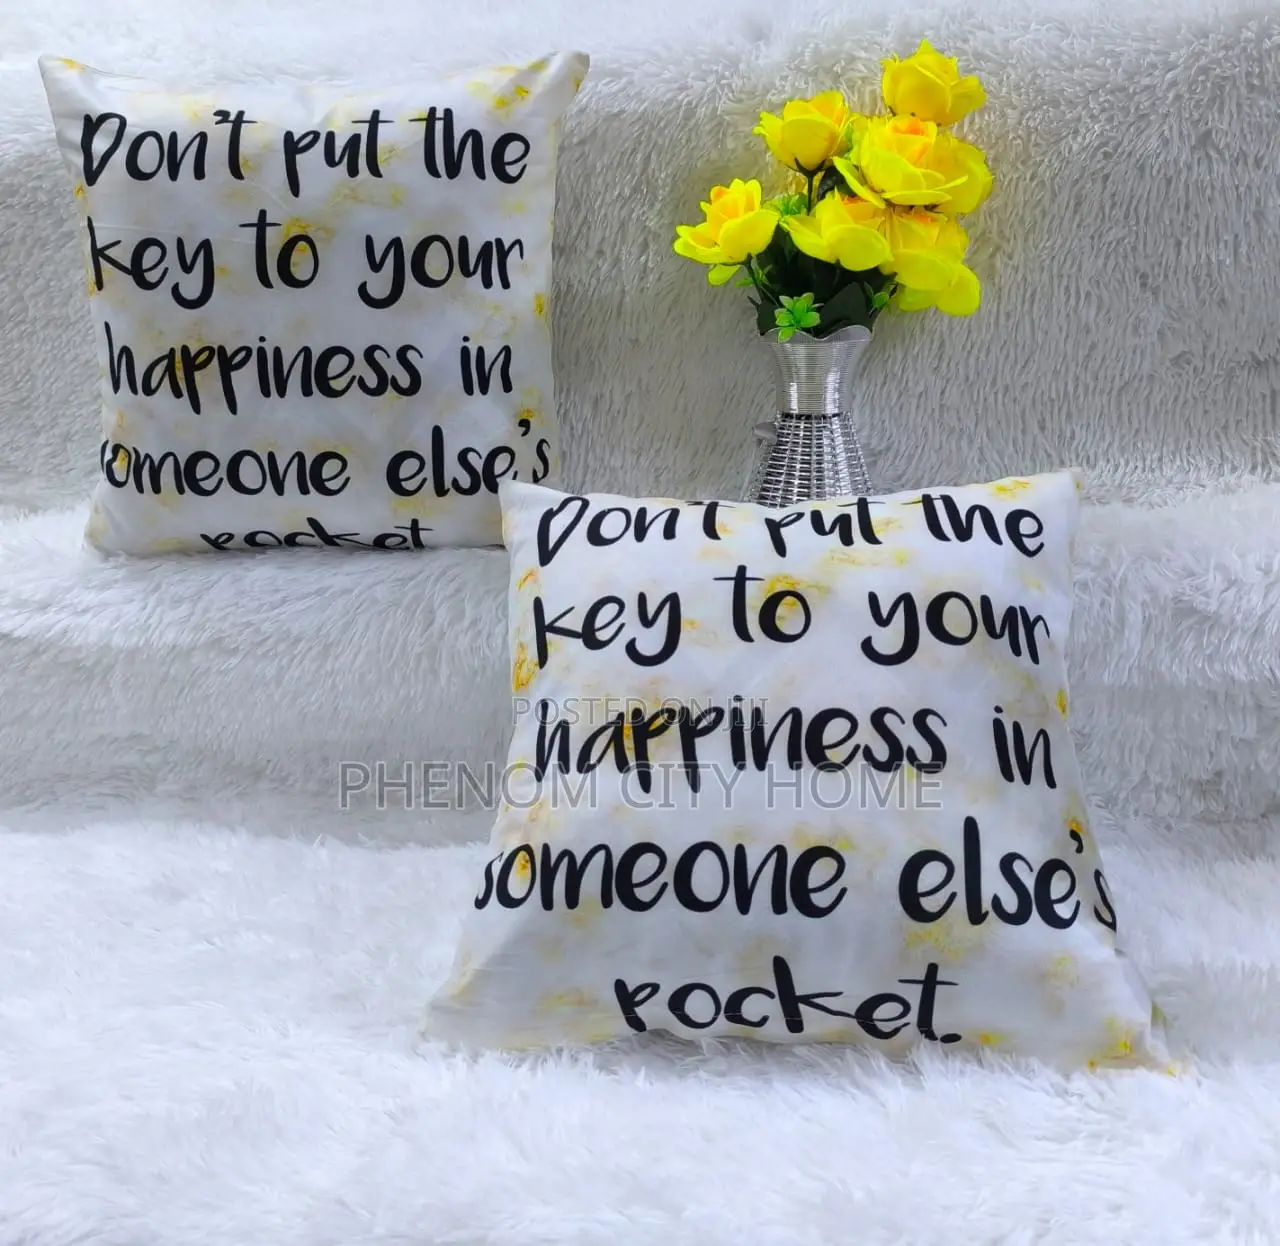 Don't put the
key to your
happiness in
someone else's
pocket
Don't put the
key to your
happiness in
someone else's
pocket.
POSTED ON JIJI
PHENOM CITY HOME